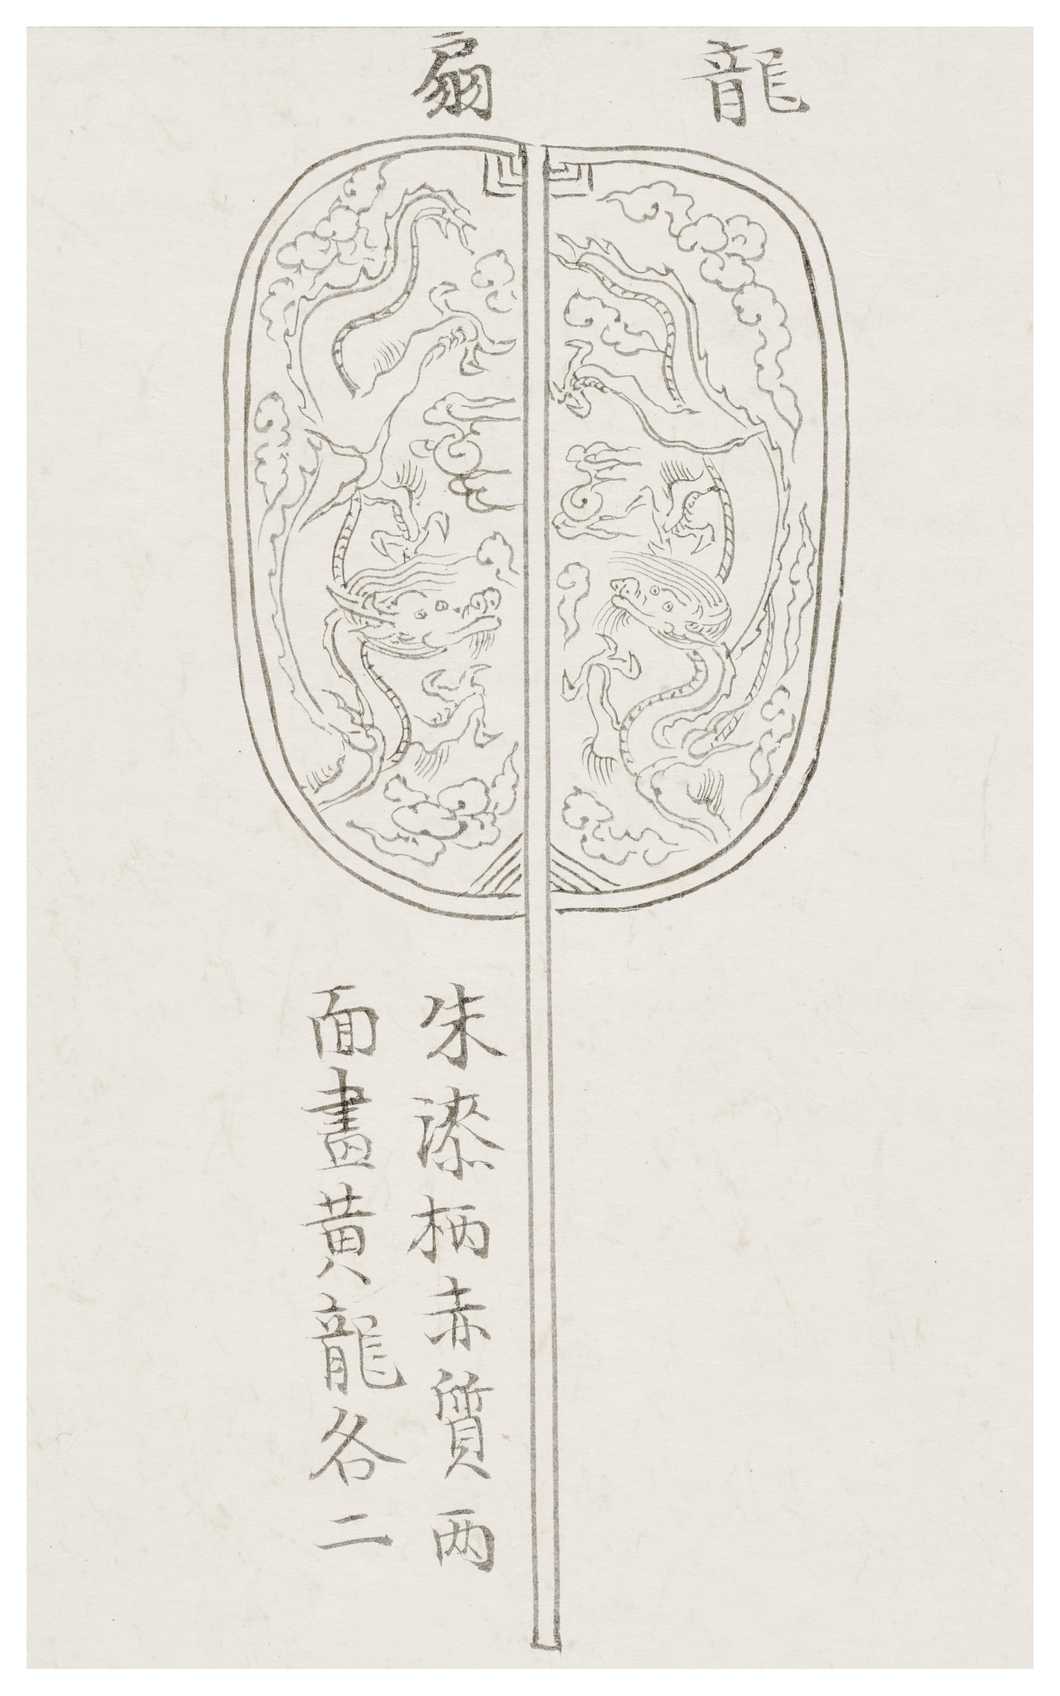 龍扇
朱漆柄赤質两
面畫黄龍各二